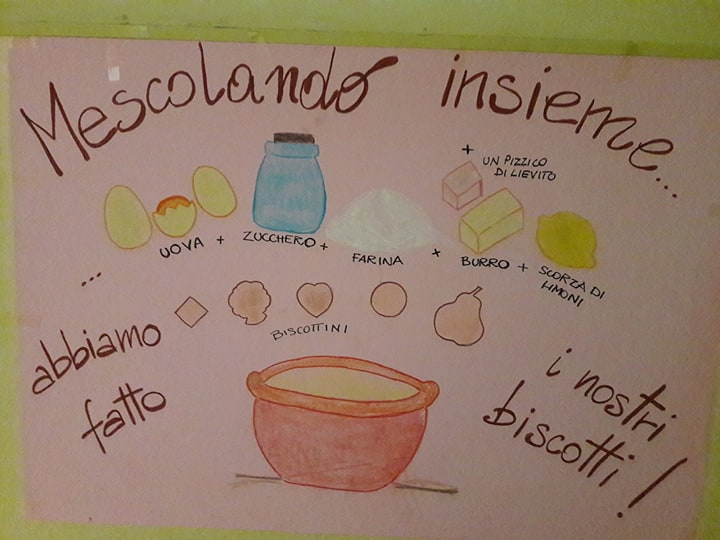 Mescolando insieme...
+ UN PIZZICO
DI LIEVITO
UOVA + ZUCCHERO + FARINA + BURRO + SCORZA DI
LIMONI
BISCOTTINI
... abbiamo
fatto
i nostri
biscotti!